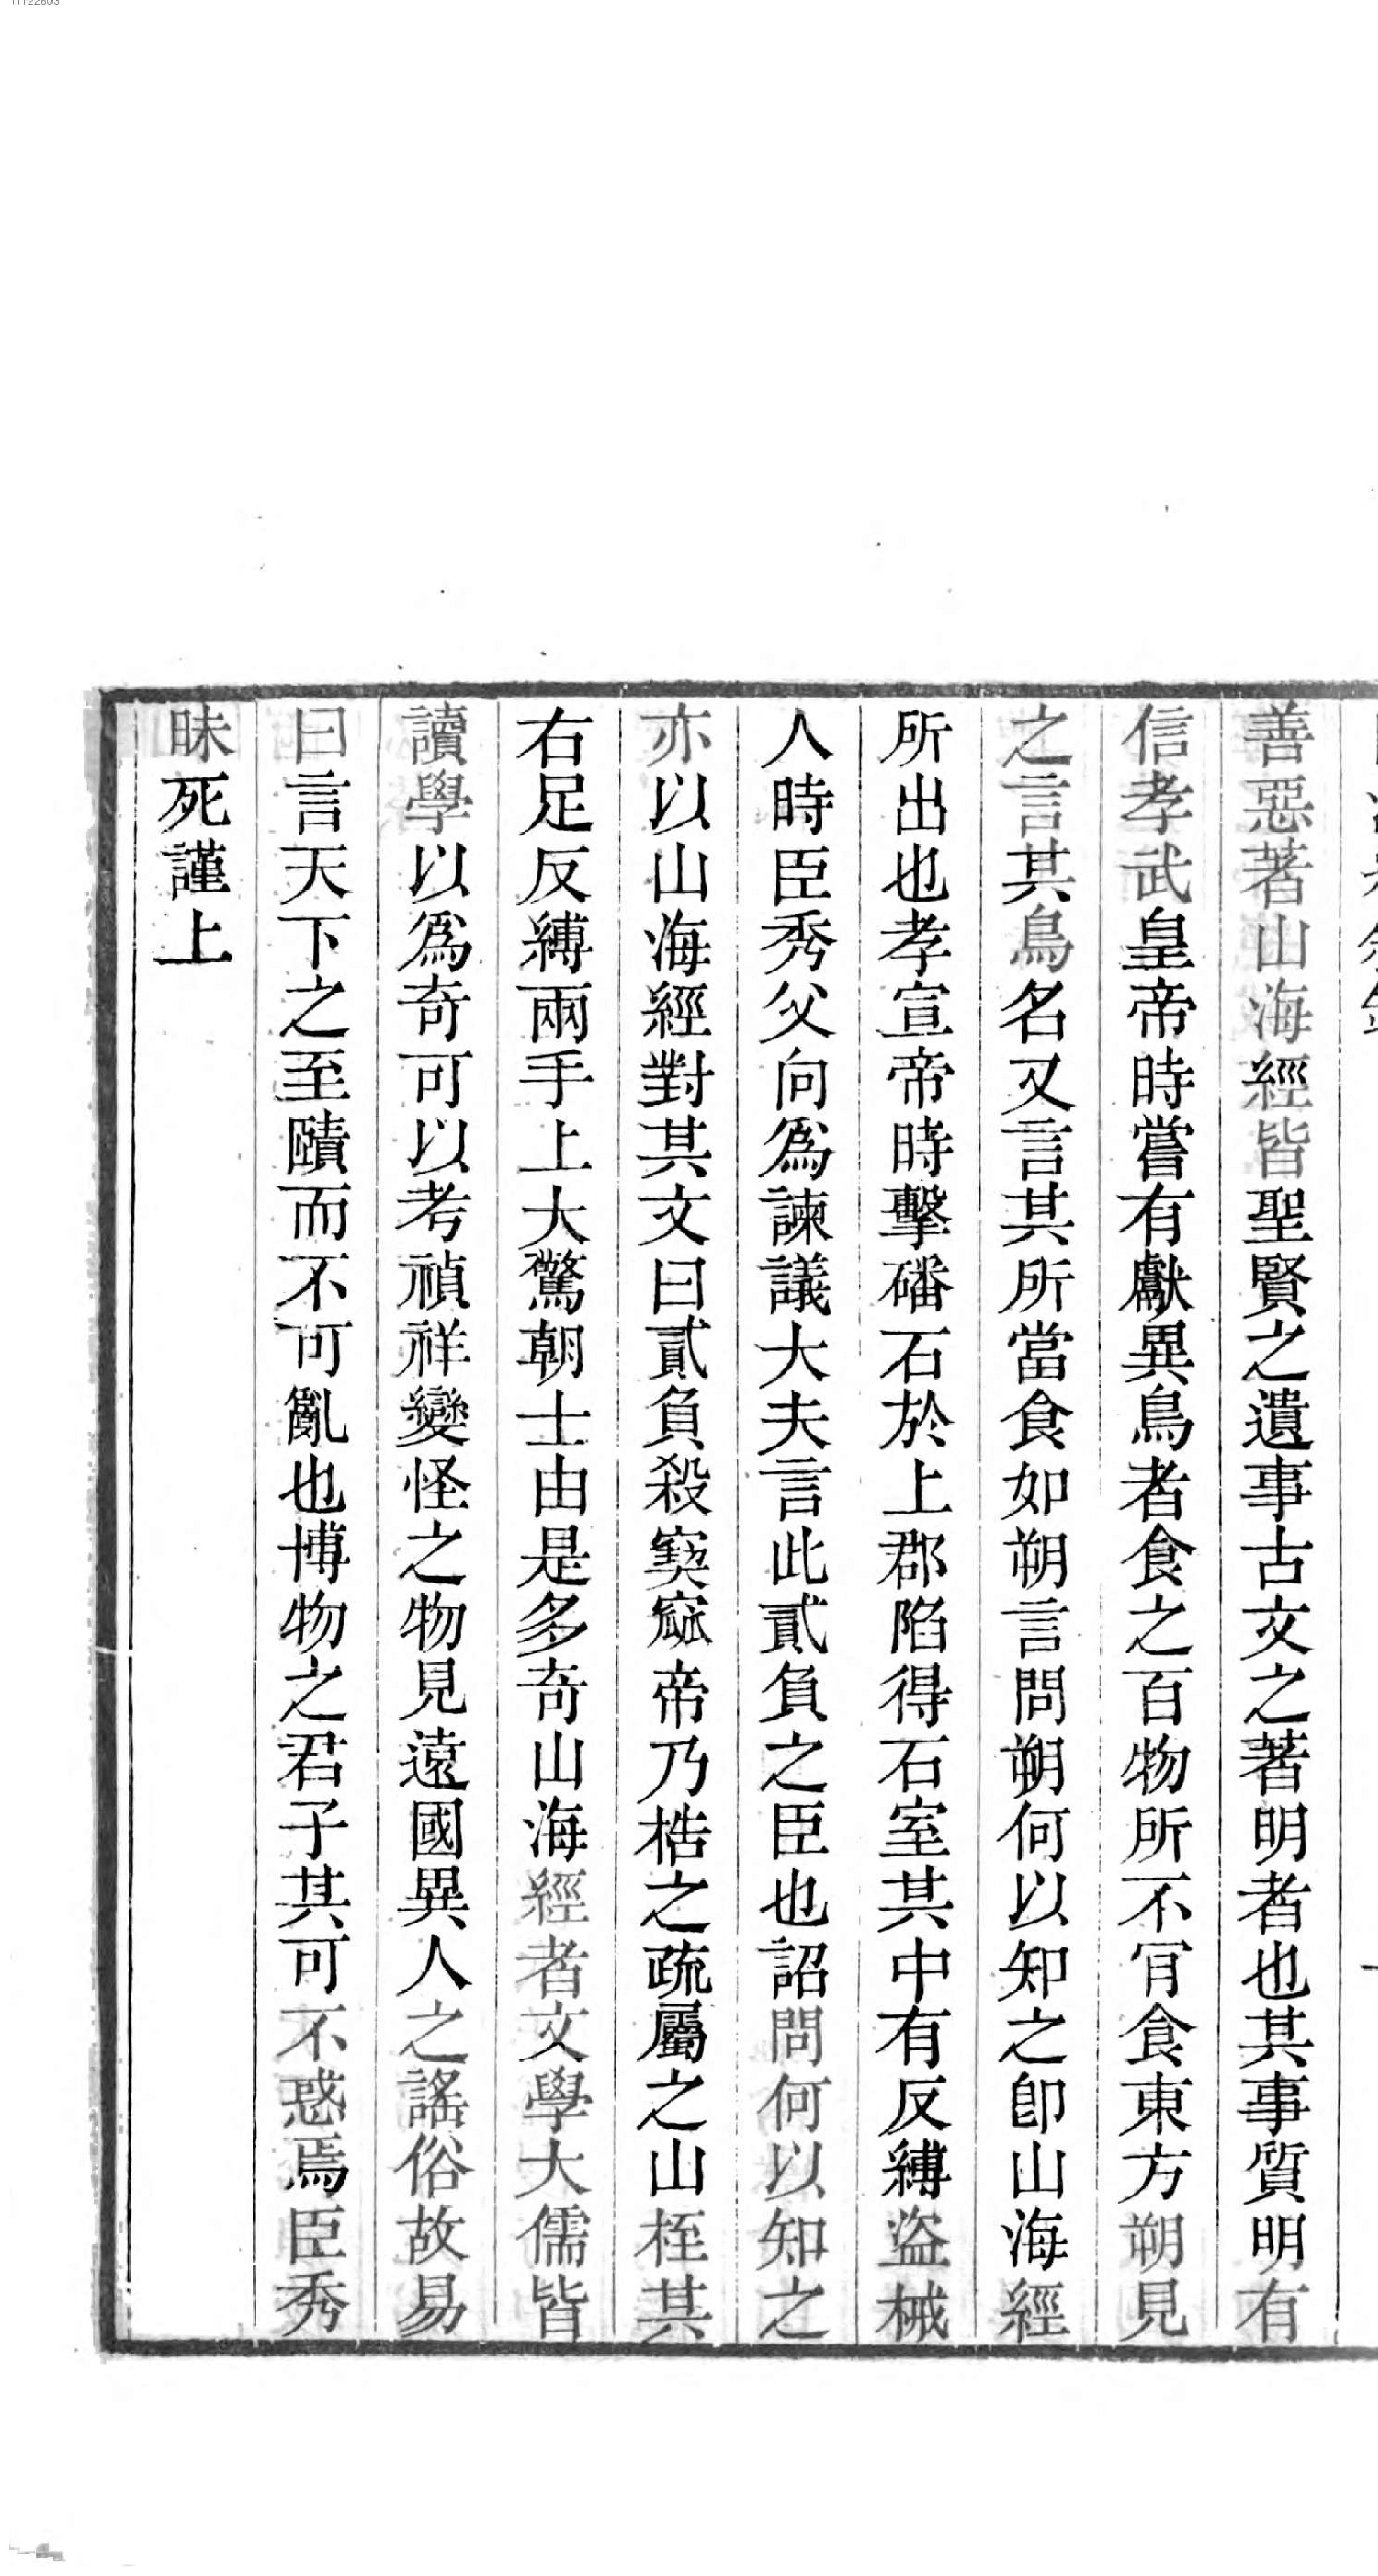 善惡著山海經皆聖賢之遺事古文之著明者也其事質明有
信孝武皇帝時嘗有獻異鳥者食之百物所不肎食東方朔見
之言其鳥名又言其所當食如朔言問朔何以知之卽山海經
所出也孝宣帝時擊磻石於上郡陷得石室其中有反縛盜械
人時臣秀父向爲諫議大夫言此貳負之臣也詔問何以知之
亦以山海經對其文曰貳負殺窫窳帝乃梏之疏屬之山桎其
右足反縛兩手上大驚朝士由是多奇山海經者文學大儒皆
讀學以爲奇可以考禎祥變怪之物見遠國異人之謠俗故易
曰言天下之至賾而不可亂也博物之君子其可不惑焉臣秀
昧死謹上